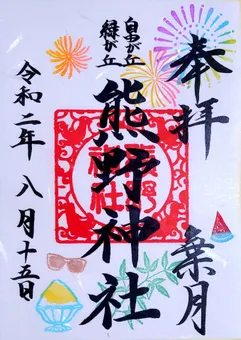 奉拝
葉月
自由が丘
緑が丘
熊野神社
令和二年 八月十五日